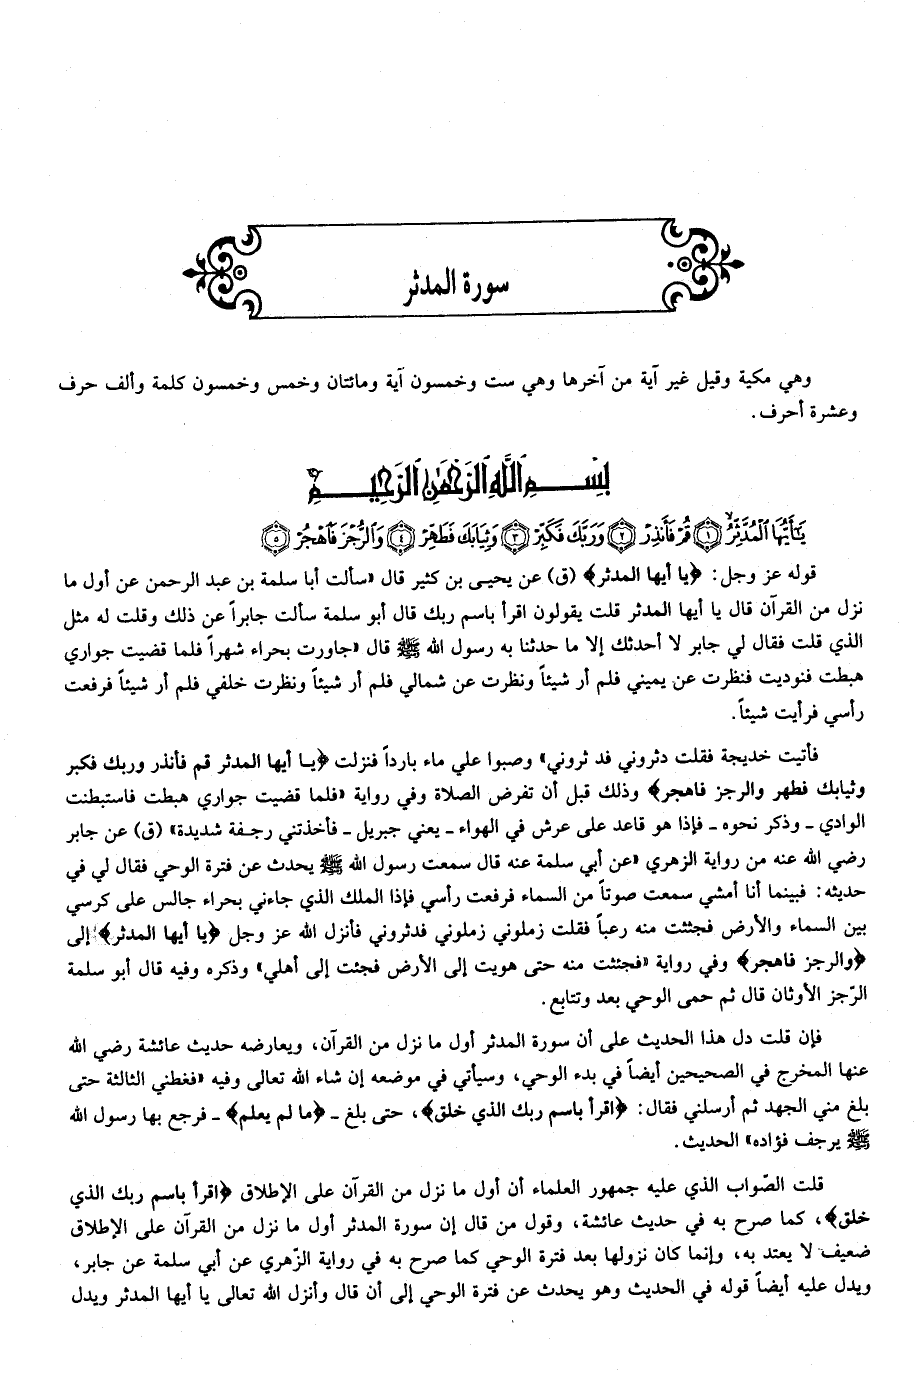 سورة المدثر
وهي مكية وقيل غير آية من آخرها وهي ست وخمسون آية ومائتان وخمس وخمسون كلمة وألف حرف
وعشرة أحرف.
بِسْمِ اللَّهِ الرَّحْمَٰنِ الرَّحِيمِ
يَٰٓأَيُّهَا ٱلْمُدَّثِّرُ ﴿١﴾ قُمْ فَأَنذِرْ ﴿٢﴾ وَرَبَّكَ فَكَبِّرْ ﴿٣﴾ وَثِيَابَكَ فَطَهِّرْ ﴿٤﴾ وَٱلرُّجْزَ فَٱهْجُرْ ﴿٥﴾
قوله عز وجل: ﴿يا أيها المدثر﴾ (ق) عن يحيى بن كثير قال «سألت أبا سلمة بن عبد الرحمن عن أول ما
نزل من القرآن قال يا أيها المدثر قلت يقولون اقرأ باسم ربك قال أبو سلمة سألت جابراً عن ذلك وقلت له مثل
الذي قلت فقال لي جابر لا أحدثك إلا ما حدثنا به رسول الله ﷺ قال «جاورت بحراء شهراً فلما قضيت جواري
هبطت فنوديت فنظرت عن يميني فلم أر شيئاً ونظرت عن شمالي فلم أر شيئاً ونظرت خلفي فلم أر شيئاً فرفعت
رأسي فرأيت شيئاً.
فأتيت خديجة فقلت دثروني فد ثروني» وصبوا علي ماء بارداً فنزلت ﴿يا أيها المدثر قم فأنذر وربك فكبر
وثيابك فطهر والرجز فاهجر﴾ وذلك قبل أن تفرض الصلاة وفي رواية «فلما قضيت جواري هبطت فاستبطنت
الوادي ـ وذكر نحوه ـ فإذا هو قاعد على عرش في الهواء ـ يعني جبريل ـ فأخذتني رجفة شديدة» (ق) عن جابر
رضي الله عنه من رواية الزهري «عن أبي سلمة عنه قال سمعت رسول الله ﷺ يحدث عن فترة الوحي فقال لي في
حديثه: فبينما أنا أمشي سمعت صوتاً من السماء فرفعت رأسي فإذا الملك الذي جاءني بحراء جالس على كرسي
بين السماء والأرض فجثثت منه رعباً فقلت زملوني زملوني فدثروني فأنزل الله عز وجل ﴿يا أيها المدثر﴾ إلى
﴿والرجز فاهجر﴾ وفي رواية «فجثثت منه حتى هويت إلى الأرض فجئت إلى أهلي» وذكره وفيه قال أبو سلمة
الرّجز الأوثان قال ثم حمى الوحي بعد وتتابع.
فإن قلت دل هذا الحديث على أن سورة المدثر أول ما نزل من القرآن، ويعارضه حديث عائشة رضي الله
عنها المخرج في الصحيحين أيضاً في بدء الوحي، وسيأتي في موضعه إن شاء الله تعالى وفيه «فغطني الثالثة حتى
بلغ مني الجهد ثم أرسلني فقال: ﴿اقرأ باسم ربك الذي خلق﴾، حتى بلغ ـ ﴿ما لم يعلم﴾ ـ فرجع بها رسول الله
ﷺ يرجف فؤاده» الحديث.
قلت الصّواب الذي عليه جمهور العلماء أن أول ما نزل من القرآن على الإطلاق ﴿اقرأ باسم ربك الذي
خلق﴾، كما صرح به في حديث عائشة، وقول من قال إن سورة المدثر أول ما نزل من القرآن على الإطلاق
ضعيف لا يعتد به، وإنما كان نزولها بعد فترة الوحي كما صرح به في رواية الزّهري عن أبي سلمة عن جابر،
ويدل عليه أيضاً قوله في الحديث وهو يحدث عن فترة الوحي إلى أن قال وأنزل الله تعالى يا أيها المدثر ويدل